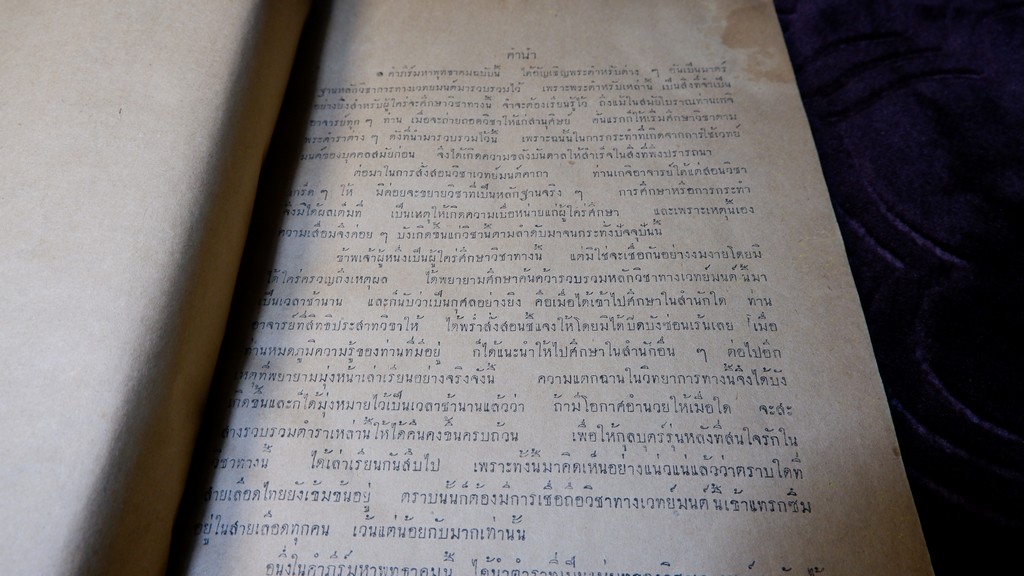 คำนำ
๑ คำภีร์มหาพุทธาคมฉบับนี้ ได้อัญเชิญพระตำหรับต่าง ๆ อันเป็นมาตร์
ฐานหลักวิชาการทางเวทยมนต์มารวบรวมไว้ เพราะพระตำหรับเหล่านี้ เป็นสิ่งที่จำเป็น
อย่างยิ่งสำหรับผู้ใคร่จะศึกษาวิชาทางนี้ จำจะต้องเรียนรู้ไว้ ถึงแม้ในสมัยโบราณท่านเกจิ
อาจารย์ทุก ๆ ท่าน เมื่อจะถ่ายทอดวิชาให้แก่สานุศิษย์ ต้นแรกก็ให้เริ่มศึกษาวิชาตาม
พระตำราต่าง ๆ ดังที่นำมารวบรวมไว้นี้ เพราะฉนั้นในการกระทำที่เกิดจากการใช้เวทย์
มนต์ของบุคคลสมัยก่อน จึงได้เกิดความขลังบันดาลให้สำเร็จในสิ่งที่พึงปรารถนา
ต่อมาในการสั่งสอนวิชาเวทย์มนต์คาถา ท่านเกจิอาจารย์ได้แต่สอนวิชา
เกร็ด ๆ ให้ มิค่อยจะขยายวิชาที่เป็นหลักฐานจริง ๆ การศึกษาหรือการกระทำ
จึงมิได้ผลเต็มที่ เป็นเหตุให้เกิดความเบื่อหน่ายแก่ผู้ใคร่ศึกษา และเพราะเหตุนี้เอง
ความเสื่อมจึงค่อย ๆ บังเกิดขึ้นแก่วิชานี้ตามลำดับมาจนกระทั่งปัจจุบันนี้
ข้าพเจ้าผู้หนึ่งเป็นผู้ใคร่ศึกษาวิชาทางนี้ แต่มิใช่จะเชื่อกันอย่างงมงายโดยมิ
ได้ใคร่ครวญถึงเหตุผล ได้พยายามศึกษาค้นคว้ารวบรวมหลักวิชาทางเวทย์มนต์นี้มา
เป็นเวลาช้านาน และก็นับว่าเป็นกุศลอย่างยิ่ง คือเมื่อได้เข้าไปศึกษาในสำนักใด ท่าน
อาจารย์ที่สิทธิประสาทวิชาให้ ได้พร่ำสั่งสอนชี้แจงให้โดยมิได้ปิดบังซ่อนเร้นเลย เมื่อ
ท่านหมดภูมิความรู้ของท่านที่มีอยู่ ก็ได้แนะนำให้ไปศึกษาในสำนักอื่น ๆ ต่อไปอีก
เหตุที่พยายามมุ่งหน้าเล่าเรียนอย่างจริงจังนี้ ความแตกฉานในวิทยาการทางนี้จึงได้บัง
เกิดขึ้นและก็ได้มุ่งหมายไว้เป็นเวลาช้านานแล้วว่า ถ้ามีโอกาศอำนวยให้เมื่อใด จะสะ
สางรวบรวมตำราเหล่านี้ให้ได้คืนคงขึ้นครบถ้วน เพื่อให้กุลบุตร์รุ่นหลังที่สนใจรักใน
วิชาทางนี้ ได้เล่าเรียนกันสืบไป เพราะทั้งนี้มาคิดเห็นอย่างแน่วแน่แล้วว่าตราบใดที่
สายเลือดไทยยังเข้มข้นอยู่ ตราบนั้นก็ต้องมีการเชื่อถือวิชาทางเวทย์มนต์นี้เข้าแทรกซึม
อยู่ในสายเลือดทุกคน เว้นแต่น้อยกับมากเท่านั้น
อนึ่งในคำภีร์มหาพุทธาคมนี้ ได้นำตำราที่เป็น